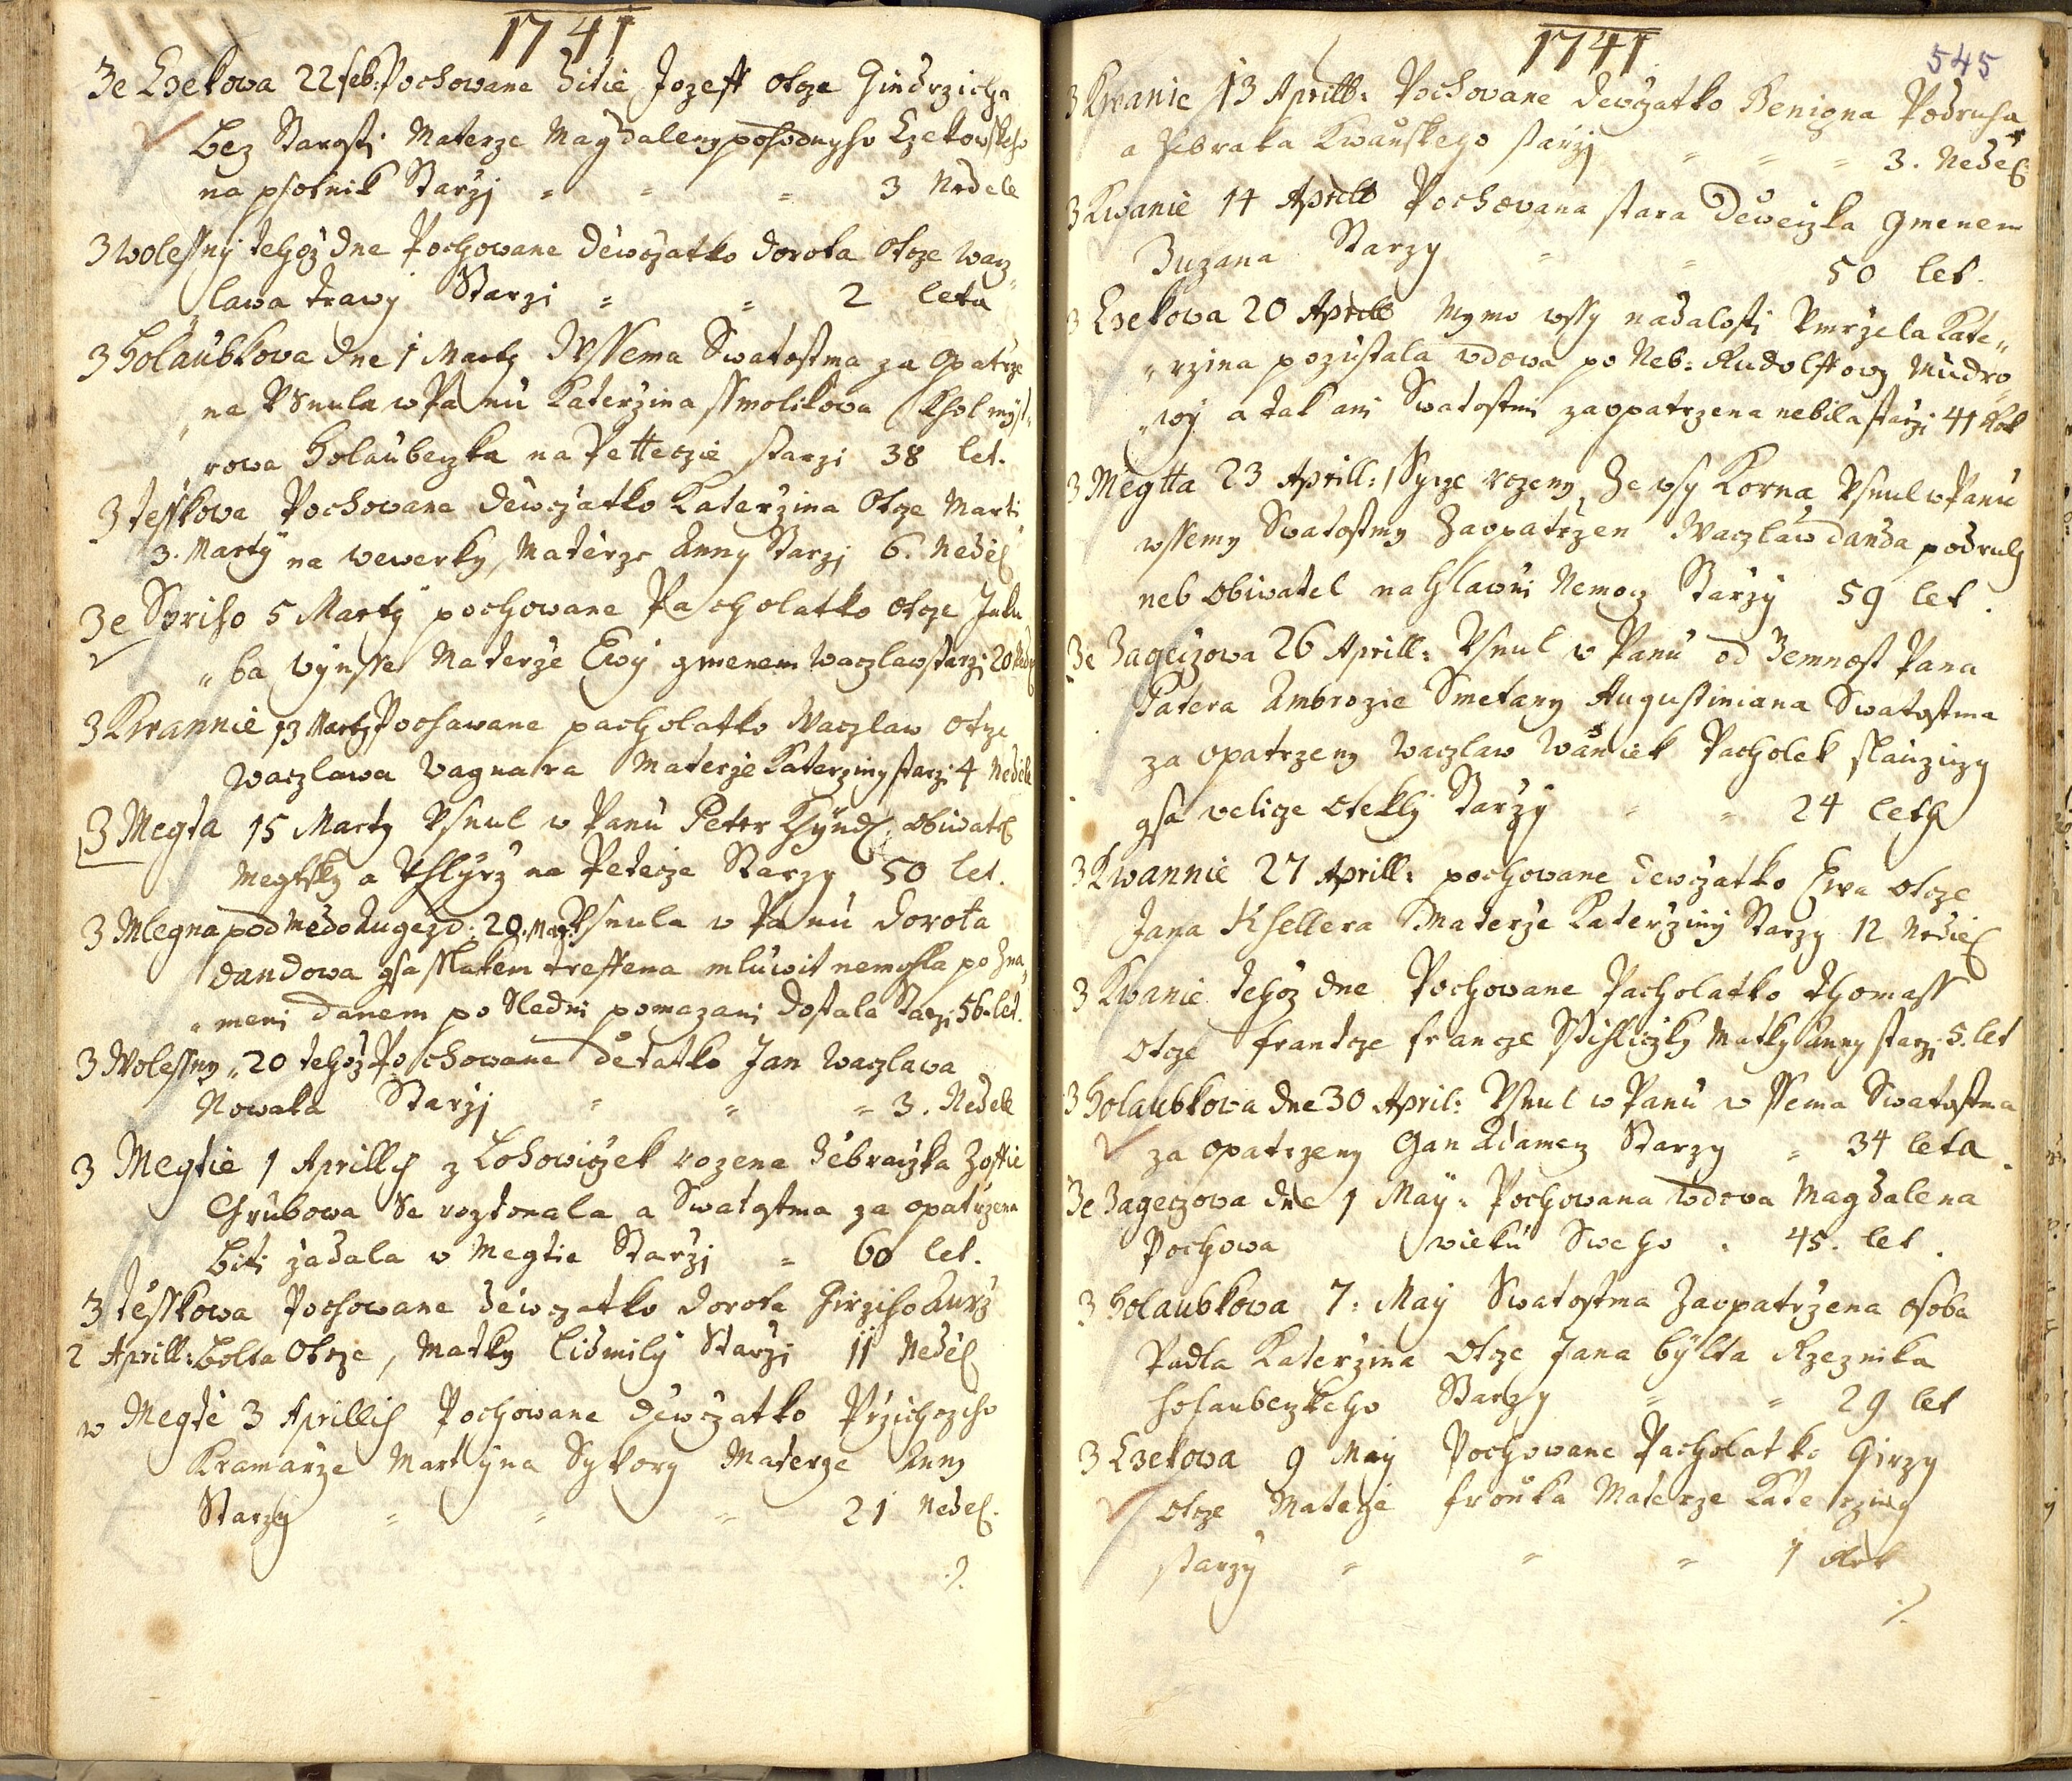 1741
Ze Czekowa 22 feb: Pochowane Ditie Jozeff otcze Gindrzicha
bez Starosti Materze Magdaleny pohodnyho Czekowskeho
na psotnik Starzj = = = 3 Nedele
Z Wolessny tehoz dne Pochowane dewczatko dorota Otcze Wacz
lawa trawy Starzi = = 2 leta
Z Holaubkova dne 1 Marty Swatostma za opatrze
na Usnula w Panu Katerzina Smolikova
rowa Holaubeczka na Petteczie starzi 38 let.
Z tesskowa Pochowane dewczatko Katerzina Otcze Marti
3. Marty na wewerky, Materze Anny Starzj 6. Nedel
Ze Sviho 5 Marty pochowane Pacholatko otcze Jaku
"ba Materze Ewy gmenem Waczlaw starzi 20
Z Kwannie 13 Marty Pochowane pacholatko Waczlaw otcze
Waczlawa Wagnara Materze Katerziny starzi 4 Nedele
Z Megta 15 Marty Usnul w Panu Petr obiwatel
Megtsky a na Petecze Starzy 50 let.
Z Mlegna pod 20. Mart: Usnula w Panu dorota
dandowa gsa sslakem treffena mluwit nemohla po Zna
"meni danem po Sledni pomazani dostala Starzi 56 let.
Z Wolessny "20 tehoz Pochowane detatko Jan Waczlawa
Nowaka Starzj = = = 3. Nedele
Z Megtie 1 Aprillis z Lohowiczek rozena zebraczka Zoffie
Hrubowa Se roztonala a Swatostma za opatrzena
biti zadala w Megtie Starzj = 60 let.
Z tesskowa Pochowane dewczatko dorota Girziho Kurz
2 Aprill: Otcze, Matky lidmily Starzi 11 Nedel
w Megte 3 Aprillis Pochowane dewczatko Przichoziho
Kramarze Martyna Sykory Materze Anny
Starzy = = = 21 Nedel.
./.
1741
545
Z Kwanie 13 Aprill: Pochovane dewczatko Benigna Podruha
a Zebraka Kwanskeho starzj = = = 3. Nedel
Z Kwanie 14 Aprill Pochovana stara deweczka gmenem
Zuzana Starzy = = 50 let.
Z Czekova 20 Aprill Mymo wssy nadalosti Umrzela Kate"
"rzina pozustala wdowa po Neb: Rudolffowy Mudro
"wy a tak ani Swatostmi zaopatrzena nebila starzi 41 Rok
Z Megtta 23 Aprill: rozeny Ze wsy Korna Usnul w Panu
wssemy Swatostmy Zaopatrzen Waczlaw danda podruh
neb obiwatel na hlawni Nemocz Starzy 59 let.
Ze Zageczowa 26 Aprill: Usnul w Panu od Pana
Patera Ambrozie Smetany Augustiniana Swatostma
za opatrzeny Waczlaw Waniek Pacholek slauziczy
gsa velicze otekly Starzy = = 24 leth
Z Kwannie 27 Aprill: pochowane dewczatko Ewa otcze
Jana Ksellera Materze Katerziny Starzy 12 Nediel
Z Kwanie tehoz dne Pochowane Pacholatko thomass
otcze francze Matky Anny starzi 5. let
Z Holaubkova dne 30 April: Usnul w Panu w ssema Swatostma
za opatrzeny Gan Adamecz Starzy = 34 leta.
Ze Zageczova dne 1 May: Pochowana wdova Magdalena
Pochowa wieku Sweho . 45. let.
Z Holaubkova 7: May Swatostma Zaopatrzena osoba
Padla Katerzina Otcze Jana bylta Rzeznika
holaubeczkeho Starzy = = 29 let
Z Czekova 9 May Pochowane Pacholatko Girzy
otcze Mateze fronka Materze Katerziny
starzy = = = 1 Rok
./.